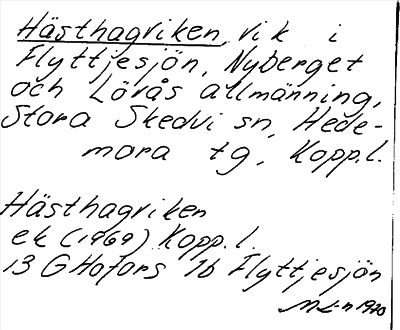 Hästhagviken, vik i
Flyttjesjön, Nyberget
och Lövås allmänning,
Stora Skedvi sn, Hede-
mora tg, Kopp.l.
Hästhagviken
ek (1969) Kopp.l.
13 G Hofors 1b Flyttjesjön
1970